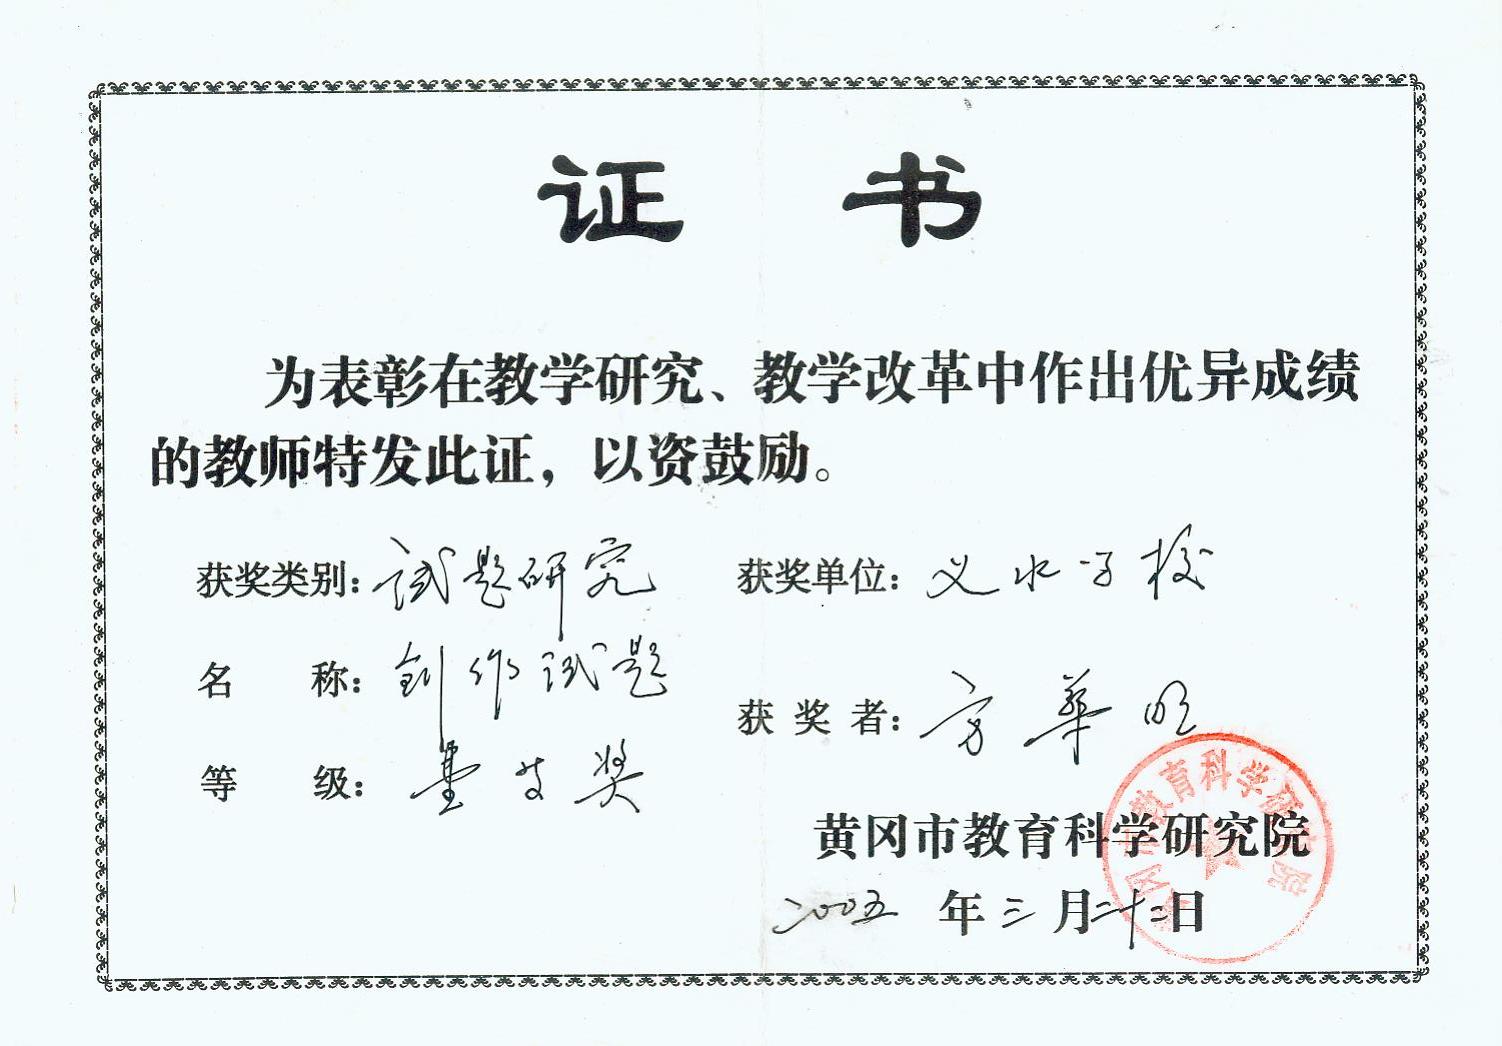 证书
为表彰在教学研究、教学改革中作出优异成绩
的教师特发此证，以资鼓励。
获奖类别：试题研究
获奖单位：义水学校
名称：创作试题
获奖者：方华明
等级：壹等奖
黄冈市教育科学研究院
二00五年三月二十二日
黄冈市教育科学研究院